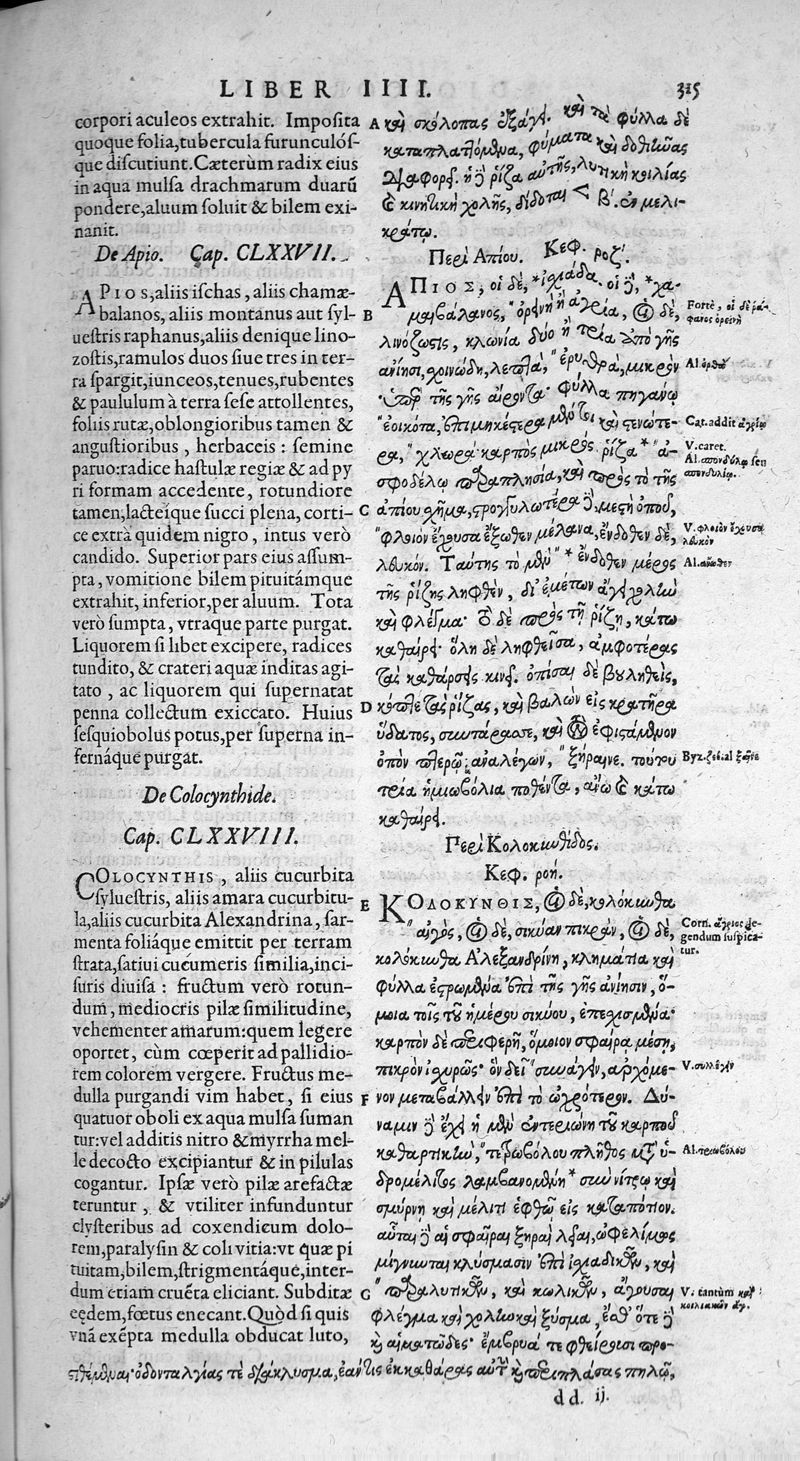 LIBER IIII.
315
corpori aculeos extrahit. Imposita
quoque folia,tubercula furunculós-
que discutiunt.Cæterùm radix eius
in aqua mulsa drachmarum duarũ
pondere,aluum soluit & bilem exi-
nanit.
De Apio. Cap. CLXXVII.
APIOS,aliis ischas, aliis chamæ-
balanos, aliis montanus aut syl-
uestris raphanus,aliis denique lino-
zostis,ramulos duos siue tres in ter-
ra spargit,iunceos,tenues,rubentes
& paululum à terra sese attollentes,
foliis rutæ,oblongioribus tamen &
angustioribus, herbaceis : semine
paruo:radice hastulæ regiæ & ad py
ri formam accedente, rotundiore
tamen,lacteíque succi plena, corti-
ce extrà quidem nigro, intus verò
candido. Superior pars eius assum-
pta, vomitione bilem pituitámque
extrahit, inferior,per aluum. Tota
verò sumpta, vtraque parte purgat.
Liquorem si libet excipere, radices
tundito, & crateri aquæ inditas agi-
tato, ac liquorem qui supernatat
penna collectum exiccato. Huius
sesquiobolus potus,per superna in-
fernáque purgat.
De Colocynthide.
Cap. CLXXVIII.
COLOCYNTHIS, aliis cucurbita
syluestris, aliis amara cucurbitu-
la,aliis cucurbita Alexandrina, sar-
menta foliáque emittit per terram
strata,satiui cucumeris similia,inci-
suris diuisa : fructum verò rotun-
dum, mediocris pilæ similitudine,
vehementer amarum:quem legere
oportet, cùm cœperit ad pallidio-
rem colorem vergere. Fructus me-
dulla purgandi vim habet, si eius
quatuor oboli ex aqua mulsa suman
tur:vel additis nitro &myrrha mel-
le decocto excipiantur & in pilulas
cogantur. Ipsæ verò pilæ arefactæ
teruntur, & vtiliter infunduntur
clysteribus ad coxendicum dolo-
rem,paralysin & coli vitia:vt quæ pi
tuitam,bilem,strigmentáque,inter-
dum etiam cruẽta eliciant. Subditæ
eędem,fœtus enecant.Quòd si quis
vnâ exẽpta medulla obducat luto,
A καὶ σκόλοπας ἐξάγει. καὶ τὰ φύλλα δὲ
καταπλαττόμενα, φύματα καὶ δοθιῆνας
διαφορεῖ. ἡ δὲ ῥίζα αὐτῆς, λυτικὴ κοιλίας
καὶ κινητικὴ χολῆς, δίδοται < β'. ἐν μελι-
κράτῳ.
Περὶ Απίου. Κεφ. ροζ'.
ΑΠΙΟΣ, οἱ δὲ, *ἰσχάδα. οἱ δὲ, *χα-
B μαιβάλανος, "ὀρεινὴ ἢ ἀγρία, οἱ δὲ,
λινόζωστις, κλωνία δύο ἢ τρία ἀπὸ γῆς
ἀνίησι,σχοινώδη,λεπτὰ, "ἐρυθρὰ, μικρὸν
ὑπὲρ τῆς γῆς αἴροντα. φύλλα πηγάνῳ
"ἐοικότα,ἐπιμηκέστερα μέντοι καὶ στενώτε-
ρα," χλωρά. καρπὸς μικρός. ῥίζα *ἀ-
σφοδέλῳ παραπλησία, καὶ πρὸς τὸ τῆς
C ἀπίου σχῆμα,στρογγυλωτέρα δὲ, μεστὴ ὀποῦ,
"φλοιὸν ἔχουσα ἔξωθεν μέλανα, ἔνδοθεν δὲ,
λευκόν. Ταύτης τὸ μὲν *ἔνδοθεν μέρος
τῆς ῥίζης ληφθὲν, δι' ἐμέτων ἄγει χολὴν
καὶ φλέγμα. τὸ δὲ πρὸς τῇ ῥίζῃ, κάτω
καθαίρει. ὅλη δὲ ληφθεῖσα, ἀμφοτέρας
τὰς καθάρσεις κινεῖ. ὀπίσαι δὲ βουληθεὶς,
D κόπτε τὰς ῥίζας, καὶ βαλὼν εἰς κρατῆρα
ὕδατος, συντάρασσε, καὶ τὸν ἐφιστάμενον
ὀπὸν πτερῷ ἀναλέγων, "ξήραινε. τούτου
τρία ἡμιωβόλια ποθέντα, ἄνω καὶ κάτω
καθαίρει.
Περὶ Κολοκυνθίδος.
Κεφ. ροή.
E ΚΟΛΟΚΥΝΘΙΣ, οἱ δὲ,κολόκυνθα
"αἰγὸς, οἱ δὲ, σικύαν πικρὰν, οἱ δὲ,
κολόκυνθα Αλεξανδρίνη, κλημάτια καὶ
φύλλα ἐστρωμένα ἐπὶ τῆς γῆς ἀνίησιν, ὅ-
μοια τοῖς τοῦ ἡμέρου σικύου, ἐπεσχισμένα.
καρπὸν δὲ περιφερῆ, ὅμοιον σφαίρᾳ μέσῃ,
πικρὸν ἰσχυρῶς. ὃν δεῖ "συνάγειν, ἀρχόμε-
F νον μεταβάλλειν ἐπὶ τὸ ὠχρότερον. Δύ-
ναμιν δὲ ἔχει ἡ μὲν ἐντεριώνη τοῦ καρποῦ
καθαρτικὴν, "τετρωβόλου πλῆθος μεθ' ὑ-
δρομέλιτος λαμβανομένη *σὺν νίτρῳ καὶ
σμύρνῃ καὶ μέλιτι ἑφθῷ εἰς καταπότιον.
αὗται δὲ αἱ σφαῖραι ξηραὶ λεῖαι, ὠφελίμως
μίγνυνται κλύσμασιν ἐπὶ ἰσχιαδικῶν, καὶ
G "παραλυτικῶν, καὶ κωλικῶν, ἄγουσαι
φλέγμα καὶ χολὴν καὶ ξύσμα, ἔσθ' ὅτε δὲ
καὶ αἱματῶδες. ἔμβρυά τε φθείρουσι προσ-
τιθέμεναι. ὀδονταλγίας τὲ διάκλυσμα,ἐάν τις ἐκκαθάρας αὐτὴν καὶ περιπλάσας πηλῷ,
Fortè, οἱ δὲ ῥά-
φανος ὀρεινὴ
Al. ὀρθὰ
Cat. addit ἀγρίῳ
V. caret.
Al. σπονδύλῳ seu
σπονδυλίῳ.
V. φλοιὸν ἔχουσα
λευκόν
Al. ἄνωθεν
Corn. ἄγριος le-
gendum suspica-
tur.
V. συλλέγειν
Al. τριωβόλου
V. tantùm καὶ
κοιλιακῶν ἄγ.
dd. ij.